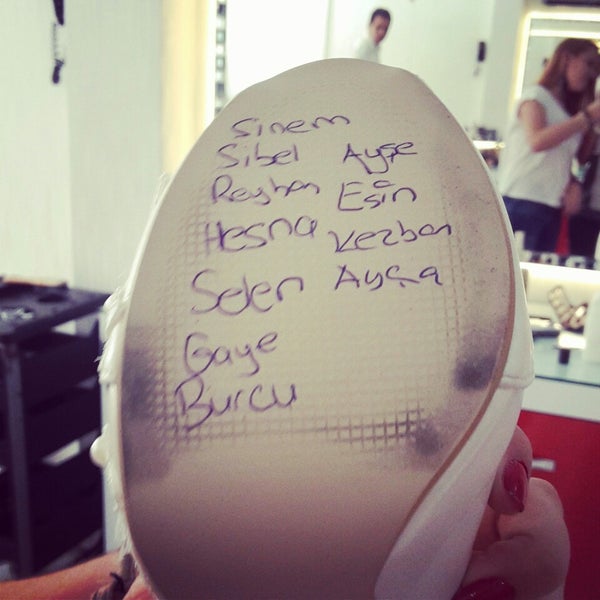 Sinem
Sibel
Reyhan
Hesna
Selen
Gaye
Burcu
Ayşe
Esin
Kezban
Ayça